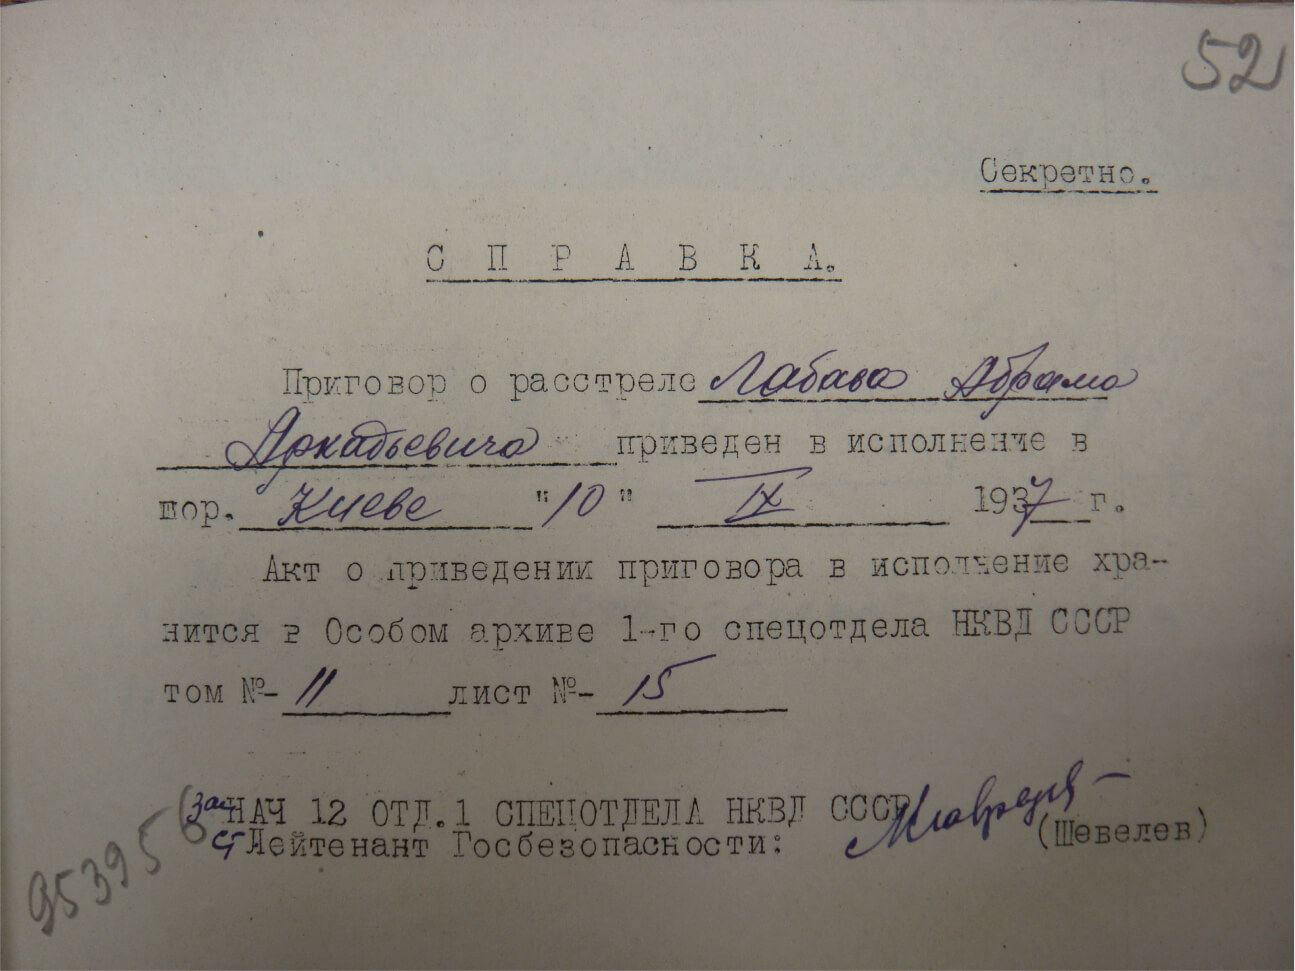 52
Секретно.
СПРАВКА.
Приговор о расстреле Лабаса Абрама
Аркадьевича приведен в исполнение в
гор. Киеве "10" IX 1937 г.
Акт о приведении приговора в исполнение хра-
нится в Особом архиве 1-го спецотдела НКВД СССР
том №- 11 лист №- 15
Зам НАЧ 12 ОТД.1 СПЕЦОТДЕЛА НКВД СССР
Ст Лейтенант Госбезопасности: (Шевелев)
953956